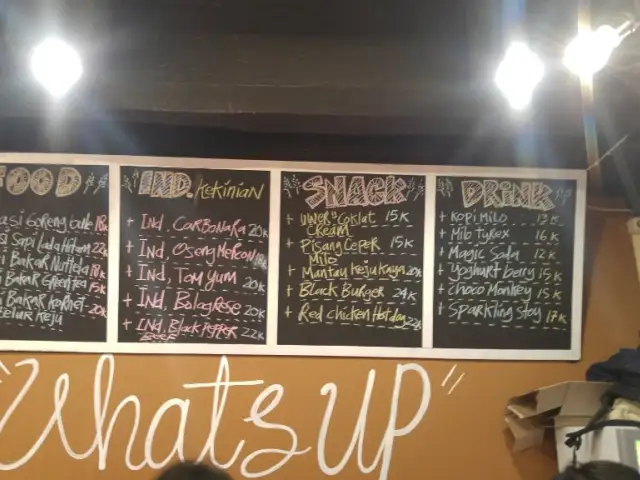 FOOD
asi Goreng Gule 18K
si Sapi Lada Hitam 22K
i Bakar Nuttela 18K
i Bakar Greentea 15K
i Bakar Kornet 20K
Telur Keju
IND. Kekinian
+ Ind. CarBoNaRa 20K
+ Ind, Oseng MerCon 18K
+ Ind, Tom yum 20K
+ Ind, Bolognese 20K
+ Ind. Black Pepper 22K
Beef
SNACK
+ Coklat 15K
CReam
+ Pisang Ceper 15K
Milo
+ Mantau Keju Kaya 20K
+ Black Burger 24K
+ Red Chicken Hotdog 22K
DRINK
+ Kopi Milo 13K
+ Milo tyrex 16K
+ Magic Soda 12K
+ Yoghurt berry 15K
+ choco Monkey 15K
+ Sparkling Stoy 17K
"Whats UP"